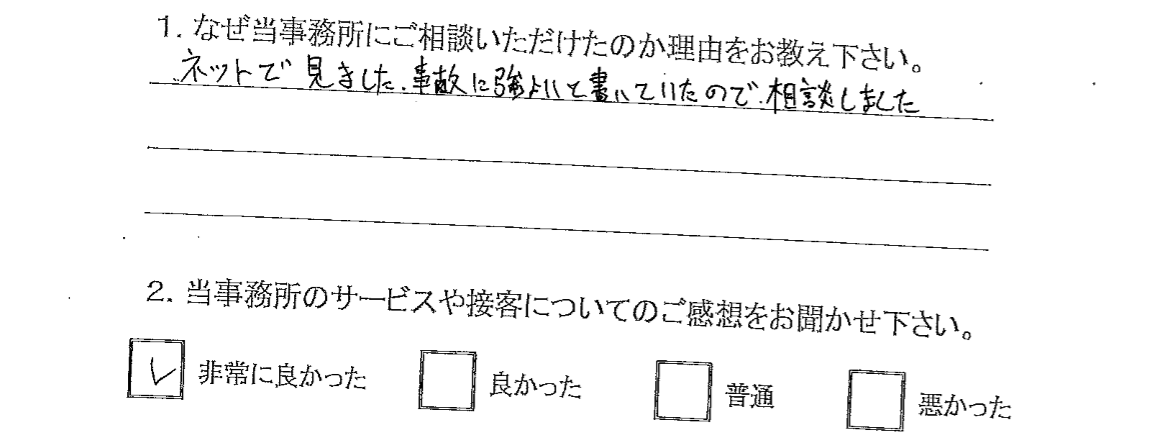 1. なぜ当事務所にご相談いただけたのか理由をお教え下さい。
ネットで見ました.事故に強よいと書いていたので.相談しました
2. 当事務所のサービスや接客についてのご感想をお聞かせ下さい。
非常に良かった 良かった 普通 悪かった